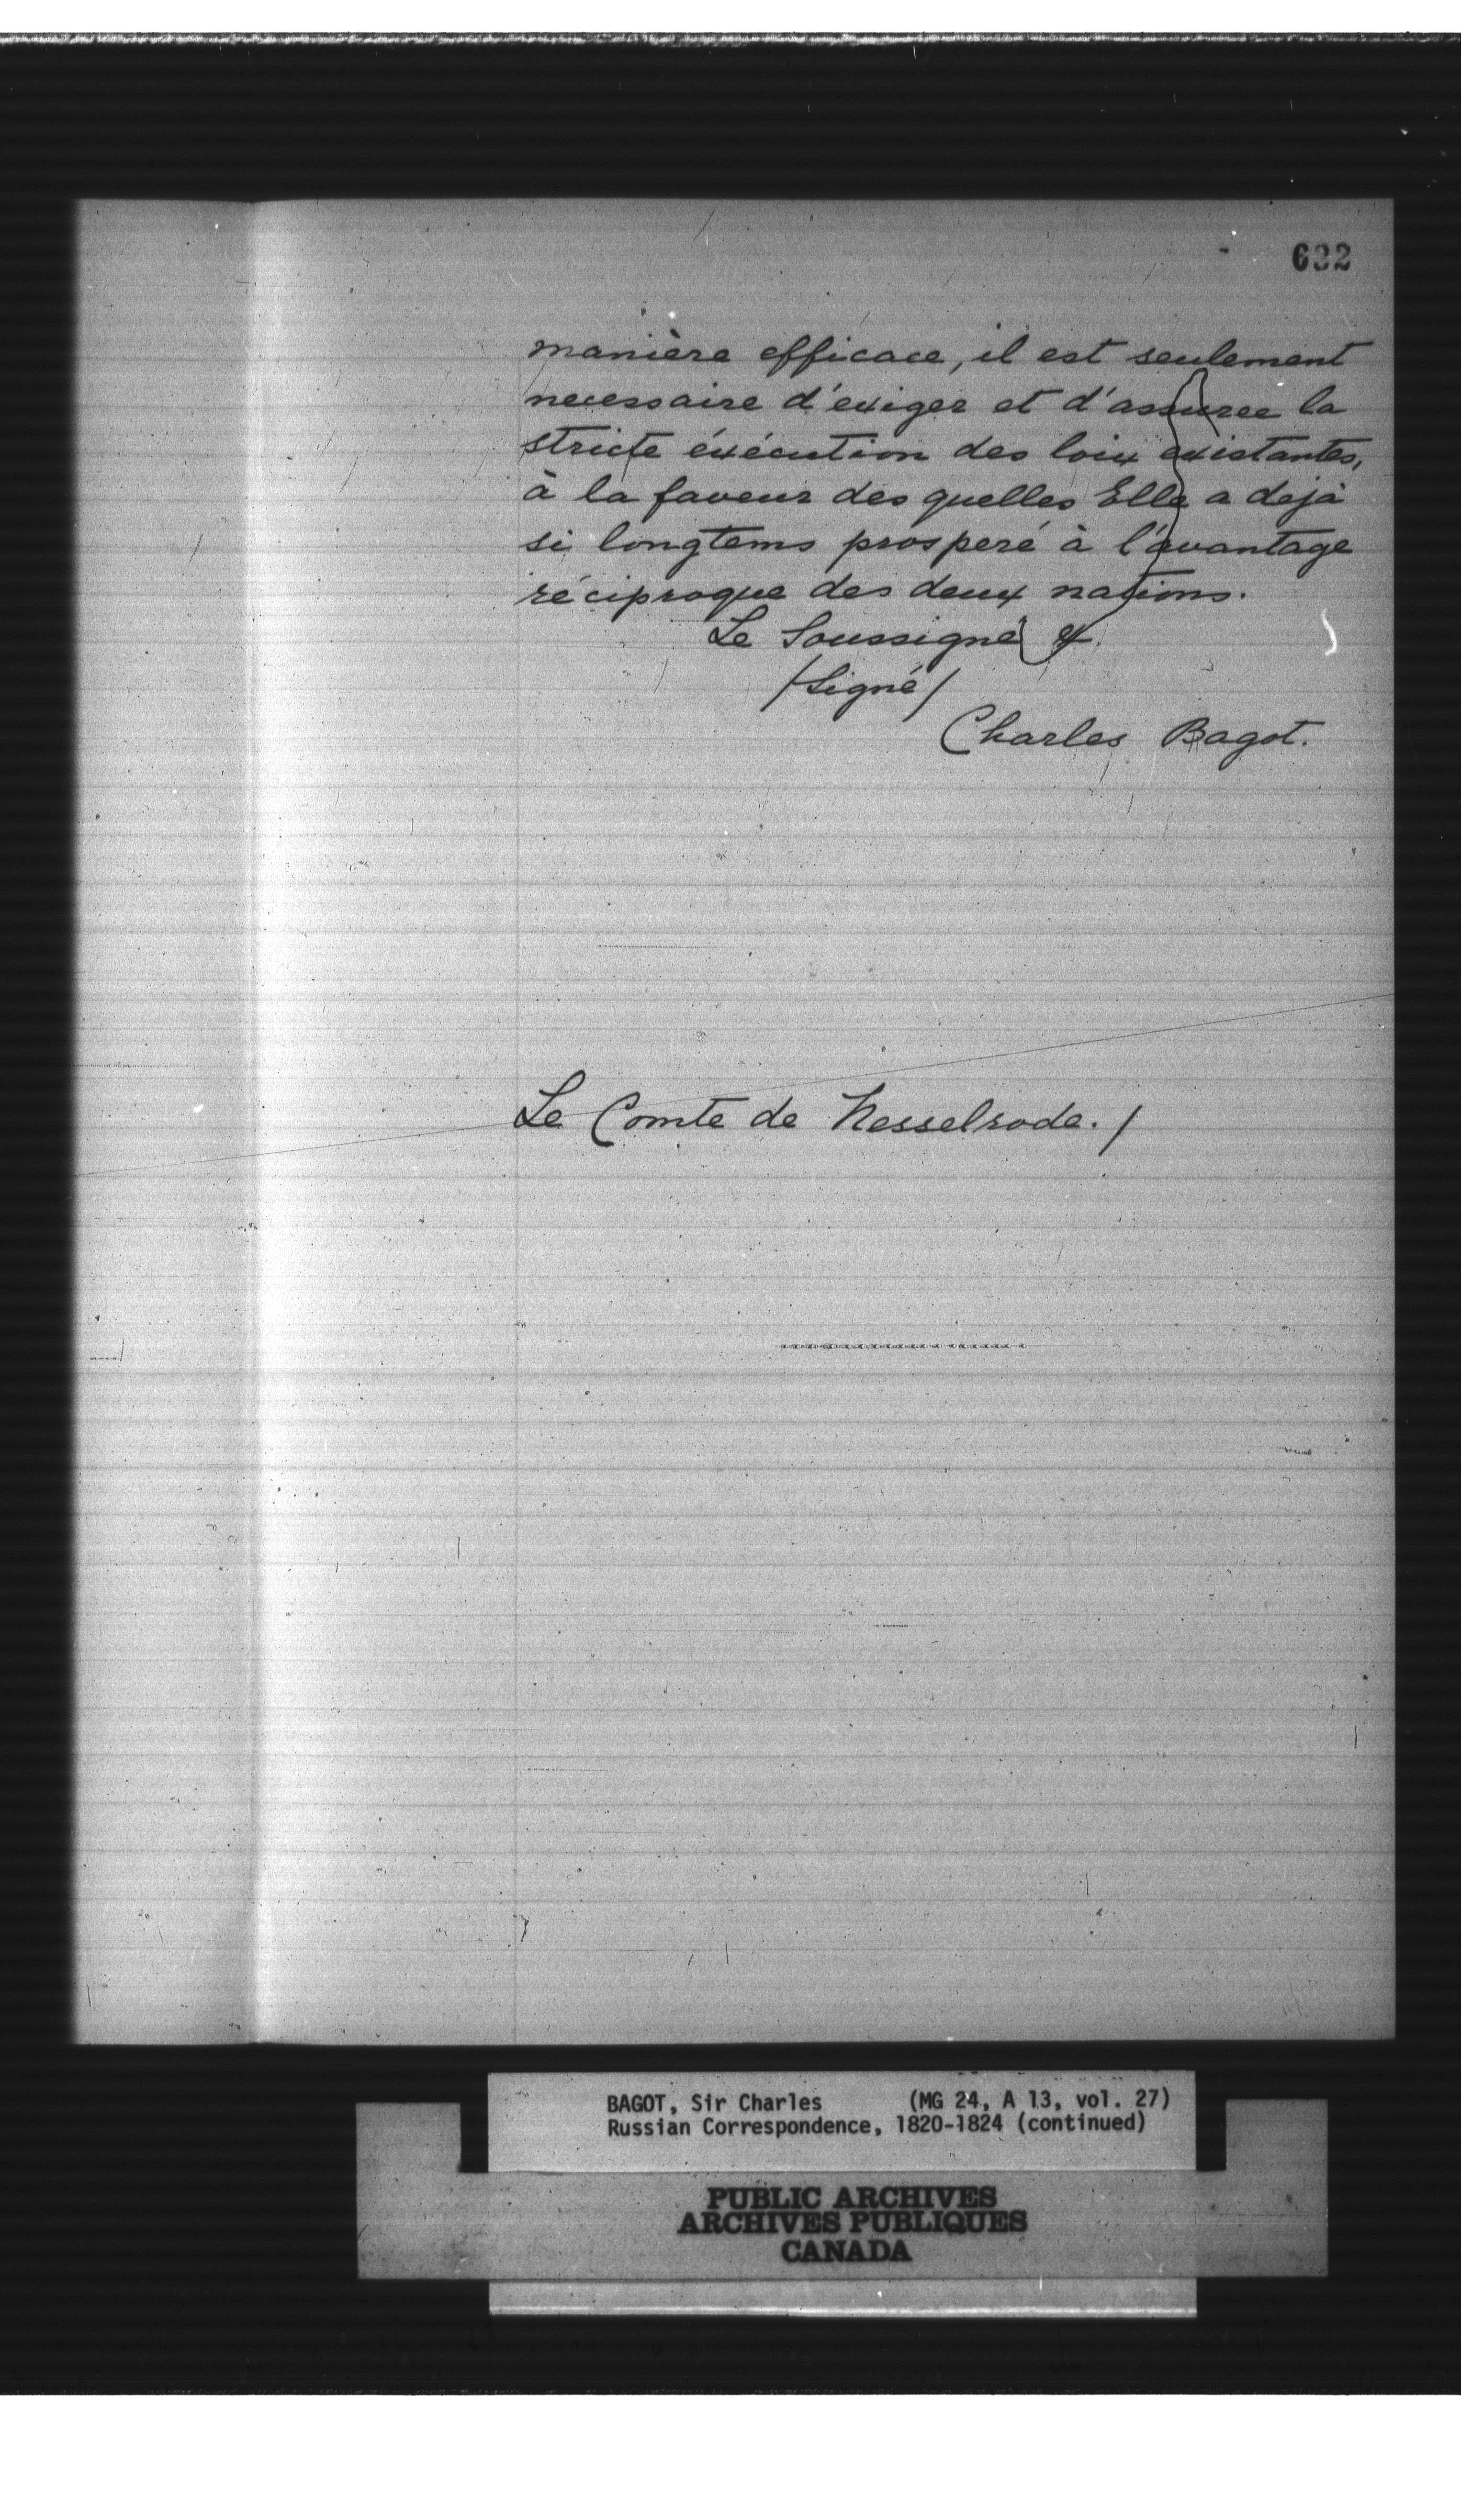 632
manière efficace, il est seulement
necessaire d'exiger et d'assuree la
stricte éxécution des loix existantes,
à la faveur des quelles Elle a dejà
si longtems prosperé à l'avantage
réciproque des deux nations.
Le Soussigné &.
/Signé/
Charles Bagot.
Le Comte de Nesselrode. /
BAGOT, Sir Charles (MG 24, A 13, vol. 27)
Russian Correspondence, 1820-1824 (continued)
PUBLIC ARCHIVES
ARCHIVES PUBLIQUES
CANADA